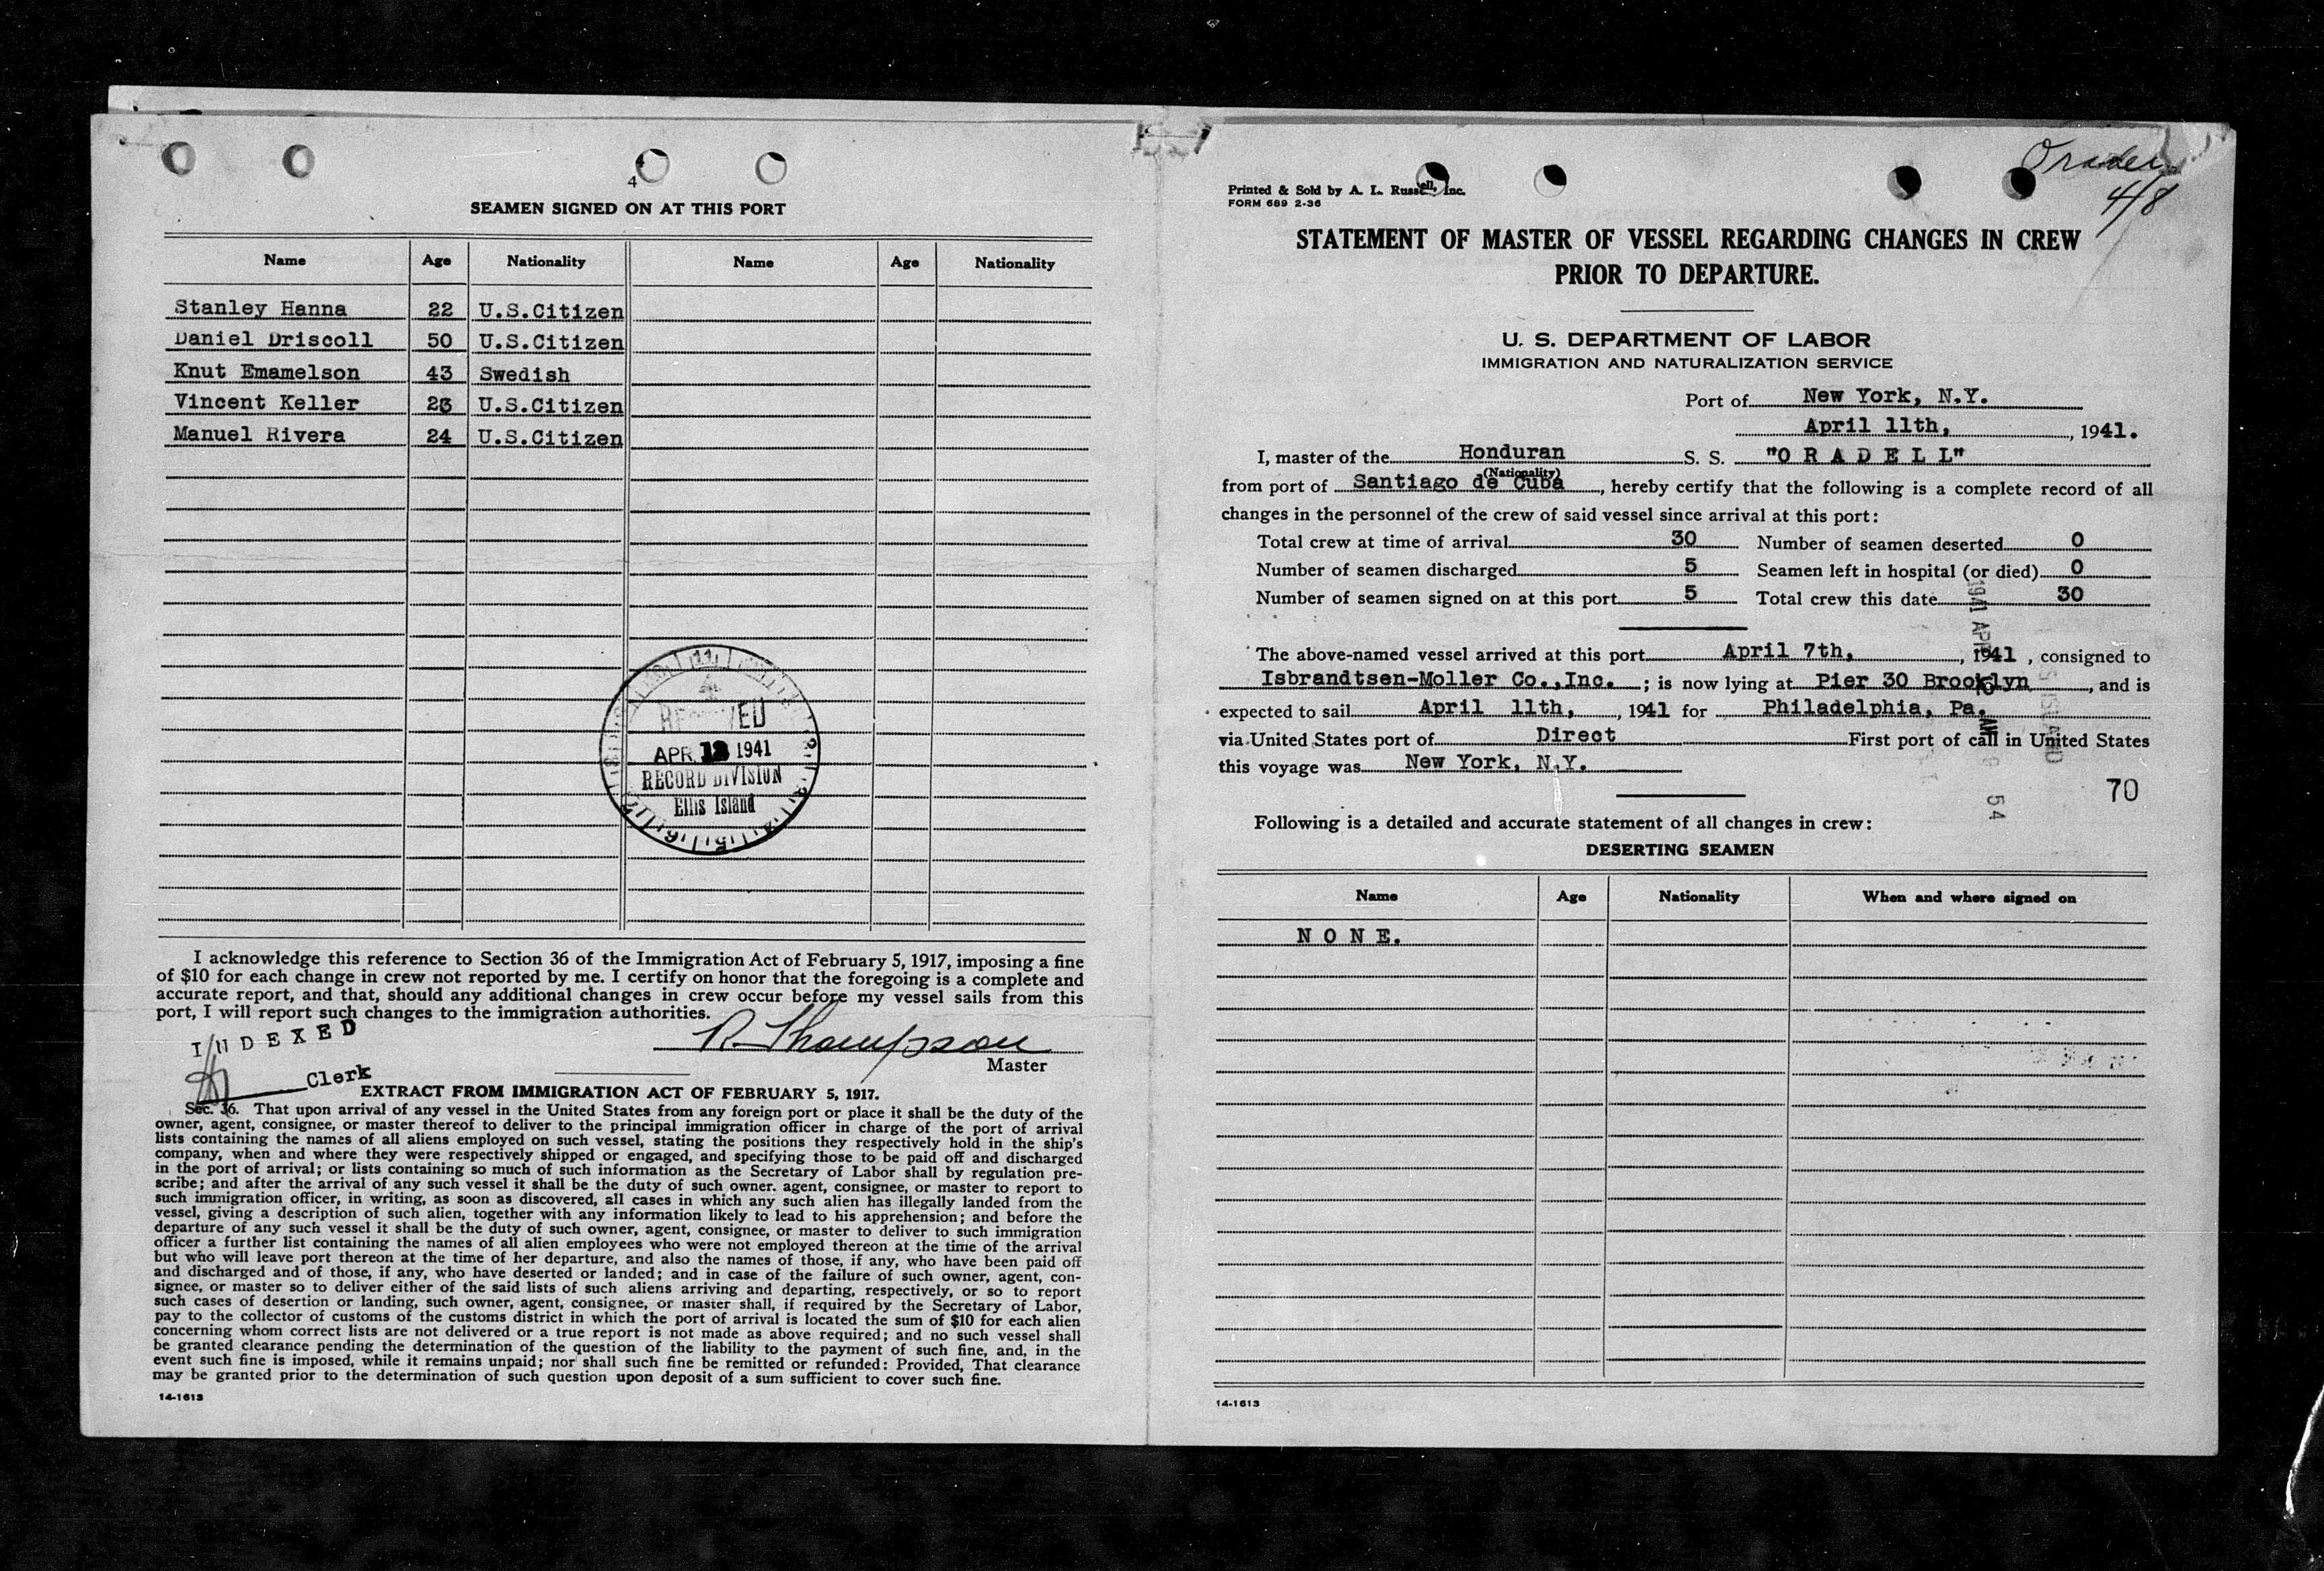 4
SEAMEN SIGNED ON AT THIS PORT
Name Age Nationality Name Age Nationality
Stanley Hanna 22 U.S.Citizen
Daniel Driscoll 50 U.S.Citizen
Knut Emamelson 43 Swedish
Vincent Keller 23 U.S.Citizen
Manuel Rivera 24 U.S.Citizen
RECEIVED
APR 12 1941
RECORD DIVISION
Ellis Island
I acknowledge this reference to Section 36 of the Immigration Act of February 5, 1917, imposing a fine
of $10 for each change in crew not reported by me. I certify on honor that the foregoing is a complete and
accurate report, and that, should any additional changes in crew occur before my vessel sails from this
port, I will report such changes to the immigration authorities.
INDEXED
R. Thompson
Master
Clerk
EXTRACT FROM IMMIGRATION ACT OF FEBRUARY 5, 1917.
Sec. 36. That upon arrival of any vessel in the United States from any foreign port or place it shall be the duty of the
owner, agent, consignee, or master thereof to deliver to the principal immigration officer in charge of the port of arrival
lists containing the names of all aliens employed on such vessel, stating the positions they respectively hold in the ship's
company, when and where they were respectively shipped or engaged, and specifying those to be paid off and discharged
in the port of arrival; or lists containing so much of such information as the Secretary of Labor shall by regulation pre-
scribe; and after the arrival of any such vessel it shall be the duty of such owner. agent, consignee, or master to report to
such immigration officer, in writing, as soon as discovered, all cases in which any such alien has illegally landed from the
vessel, giving a description of such alien, together with any information likely to lead to his apprehension; and before the
departure of any such vessel it shall be the duty of such owner, agent, consignee, or master to deliver to such immigration
officer a further list containing the names of all alien employees who were not employed thereon at the time of the arrival
but who will leave port thereon at the time of her departure, and also the names of those, if any, who have been paid off
and discharged and of those, if any, who have deserted or landed; and in case of the failure of such owner, agent, con-
signee, or master so to deliver either of the said lists of such aliens arriving and departing, respectively, or so to report
such cases of desertion or landing, such owner, agent, consignee, or master shall, if required by the Secretary of Labor,
pay to the collector of customs of the customs district in which the port of arrival is located the sum of $10 for each alien
concerning whom correct lists are not delivered or a true report is not made as above required; and no such vessel shall
be granted clearance pending the determination of the question of the liability to the payment of such fine, and, in the
event such fine is imposed, while it remains unpaid; nor shall such fine be remitted or refunded: Provided, That clearance
may be granted prior to the determination of such question upon deposit of a sum sufficient to cover such fine.
14-1613
Oradell
4/8
Printed & Sold by A. L. Russell, Inc.
FORM 689 2-36
STATEMENT OF MASTER OF VESSEL REGARDING CHANGES IN CREW
PRIOR TO DEPARTURE.
U. S. DEPARTMENT OF LABOR
IMMIGRATION AND NATURALIZATION SERVICE
Port of New York, N.Y.
April 11th, , 1941.
I, master of the Honduran S. S. "O R A D E L L"
(Nationality)
from port of Santiago de Cuba , hereby certify that the following is a complete record of all
changes in the personnel of the crew of said vessel since arrival at this port:
Total crew at time of arrival 30 Number of seamen deserted 0
Number of seamen discharged 5 Seamen left in hospital (or died) 0
Number of seamen signed on at this port 5 Total crew this date 30
The above-named vessel arrived at this port April 7th, , 1941 , consigned to
Isbrandtsen-Moller Co.,Inc. ; is now lying at Pier 30 Brooklyn , and is
expected to sail April 11th, , 1941 for Philadelphia, Pa.
via United States port of Direct First port of call in United States
this voyage was New York, N.Y.
1941 APR
AM
54
70
Following is a detailed and accurate statement of all changes in crew:
DESERTING SEAMEN
Name Age Nationality When and where signed on
N O N E.
14-1613